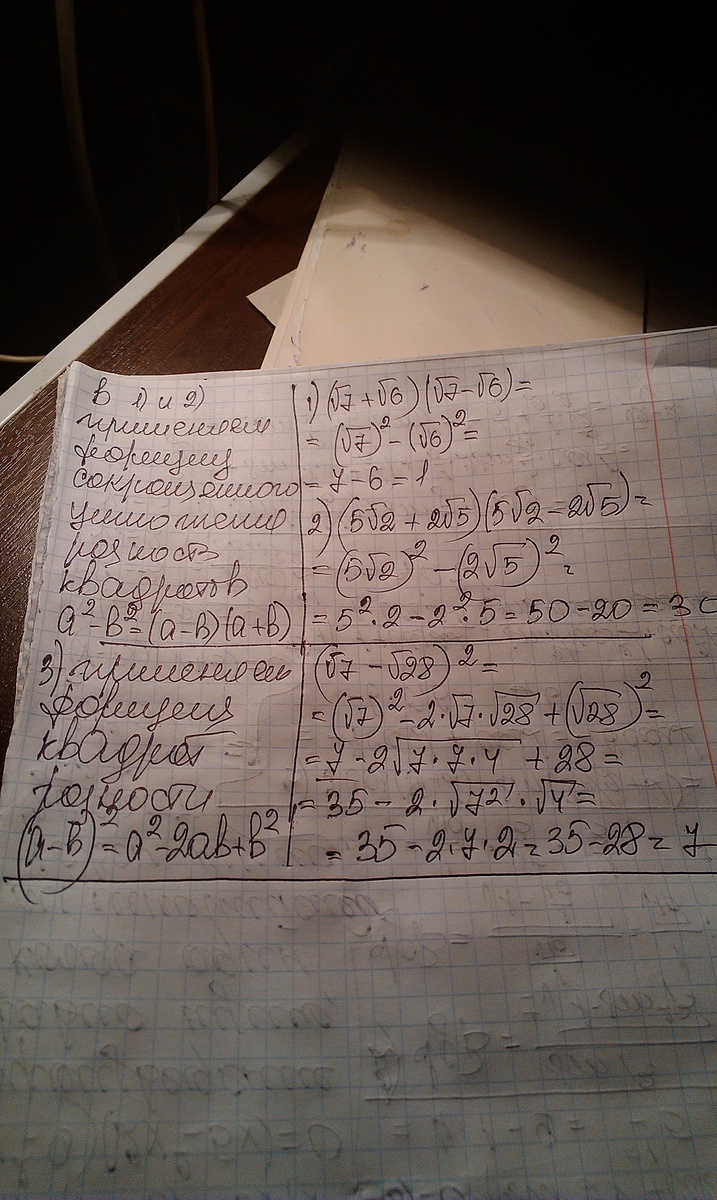 в 1) и 2)
применяем
формулу
сокращенного
умножения
разность
квадратов
a² - b² = (a - b)(a + b)
1) (√7 + √6)(√7 - √6) =
= (√7)² - (√6)² =
= 7 - 6 = 1
2) (5√2 + 2√5)(5√2 - 2√5) =
= (5√2)² - (2√5)² =
= 5²·2 - 2²·5 = 50 - 20 = 30
3) применяем
формулу
квадрат
разности
(a - b)² = a² - 2ab + b²
(√7 - √28)² =
= (√7)² - 2·√7·√28 + (√28)² =
= 7 - 2√7·7·4 + 28 =
= 35 - 2·√7²·√4 =
= 35 - 2·7·2 = 35 - 28 = 7